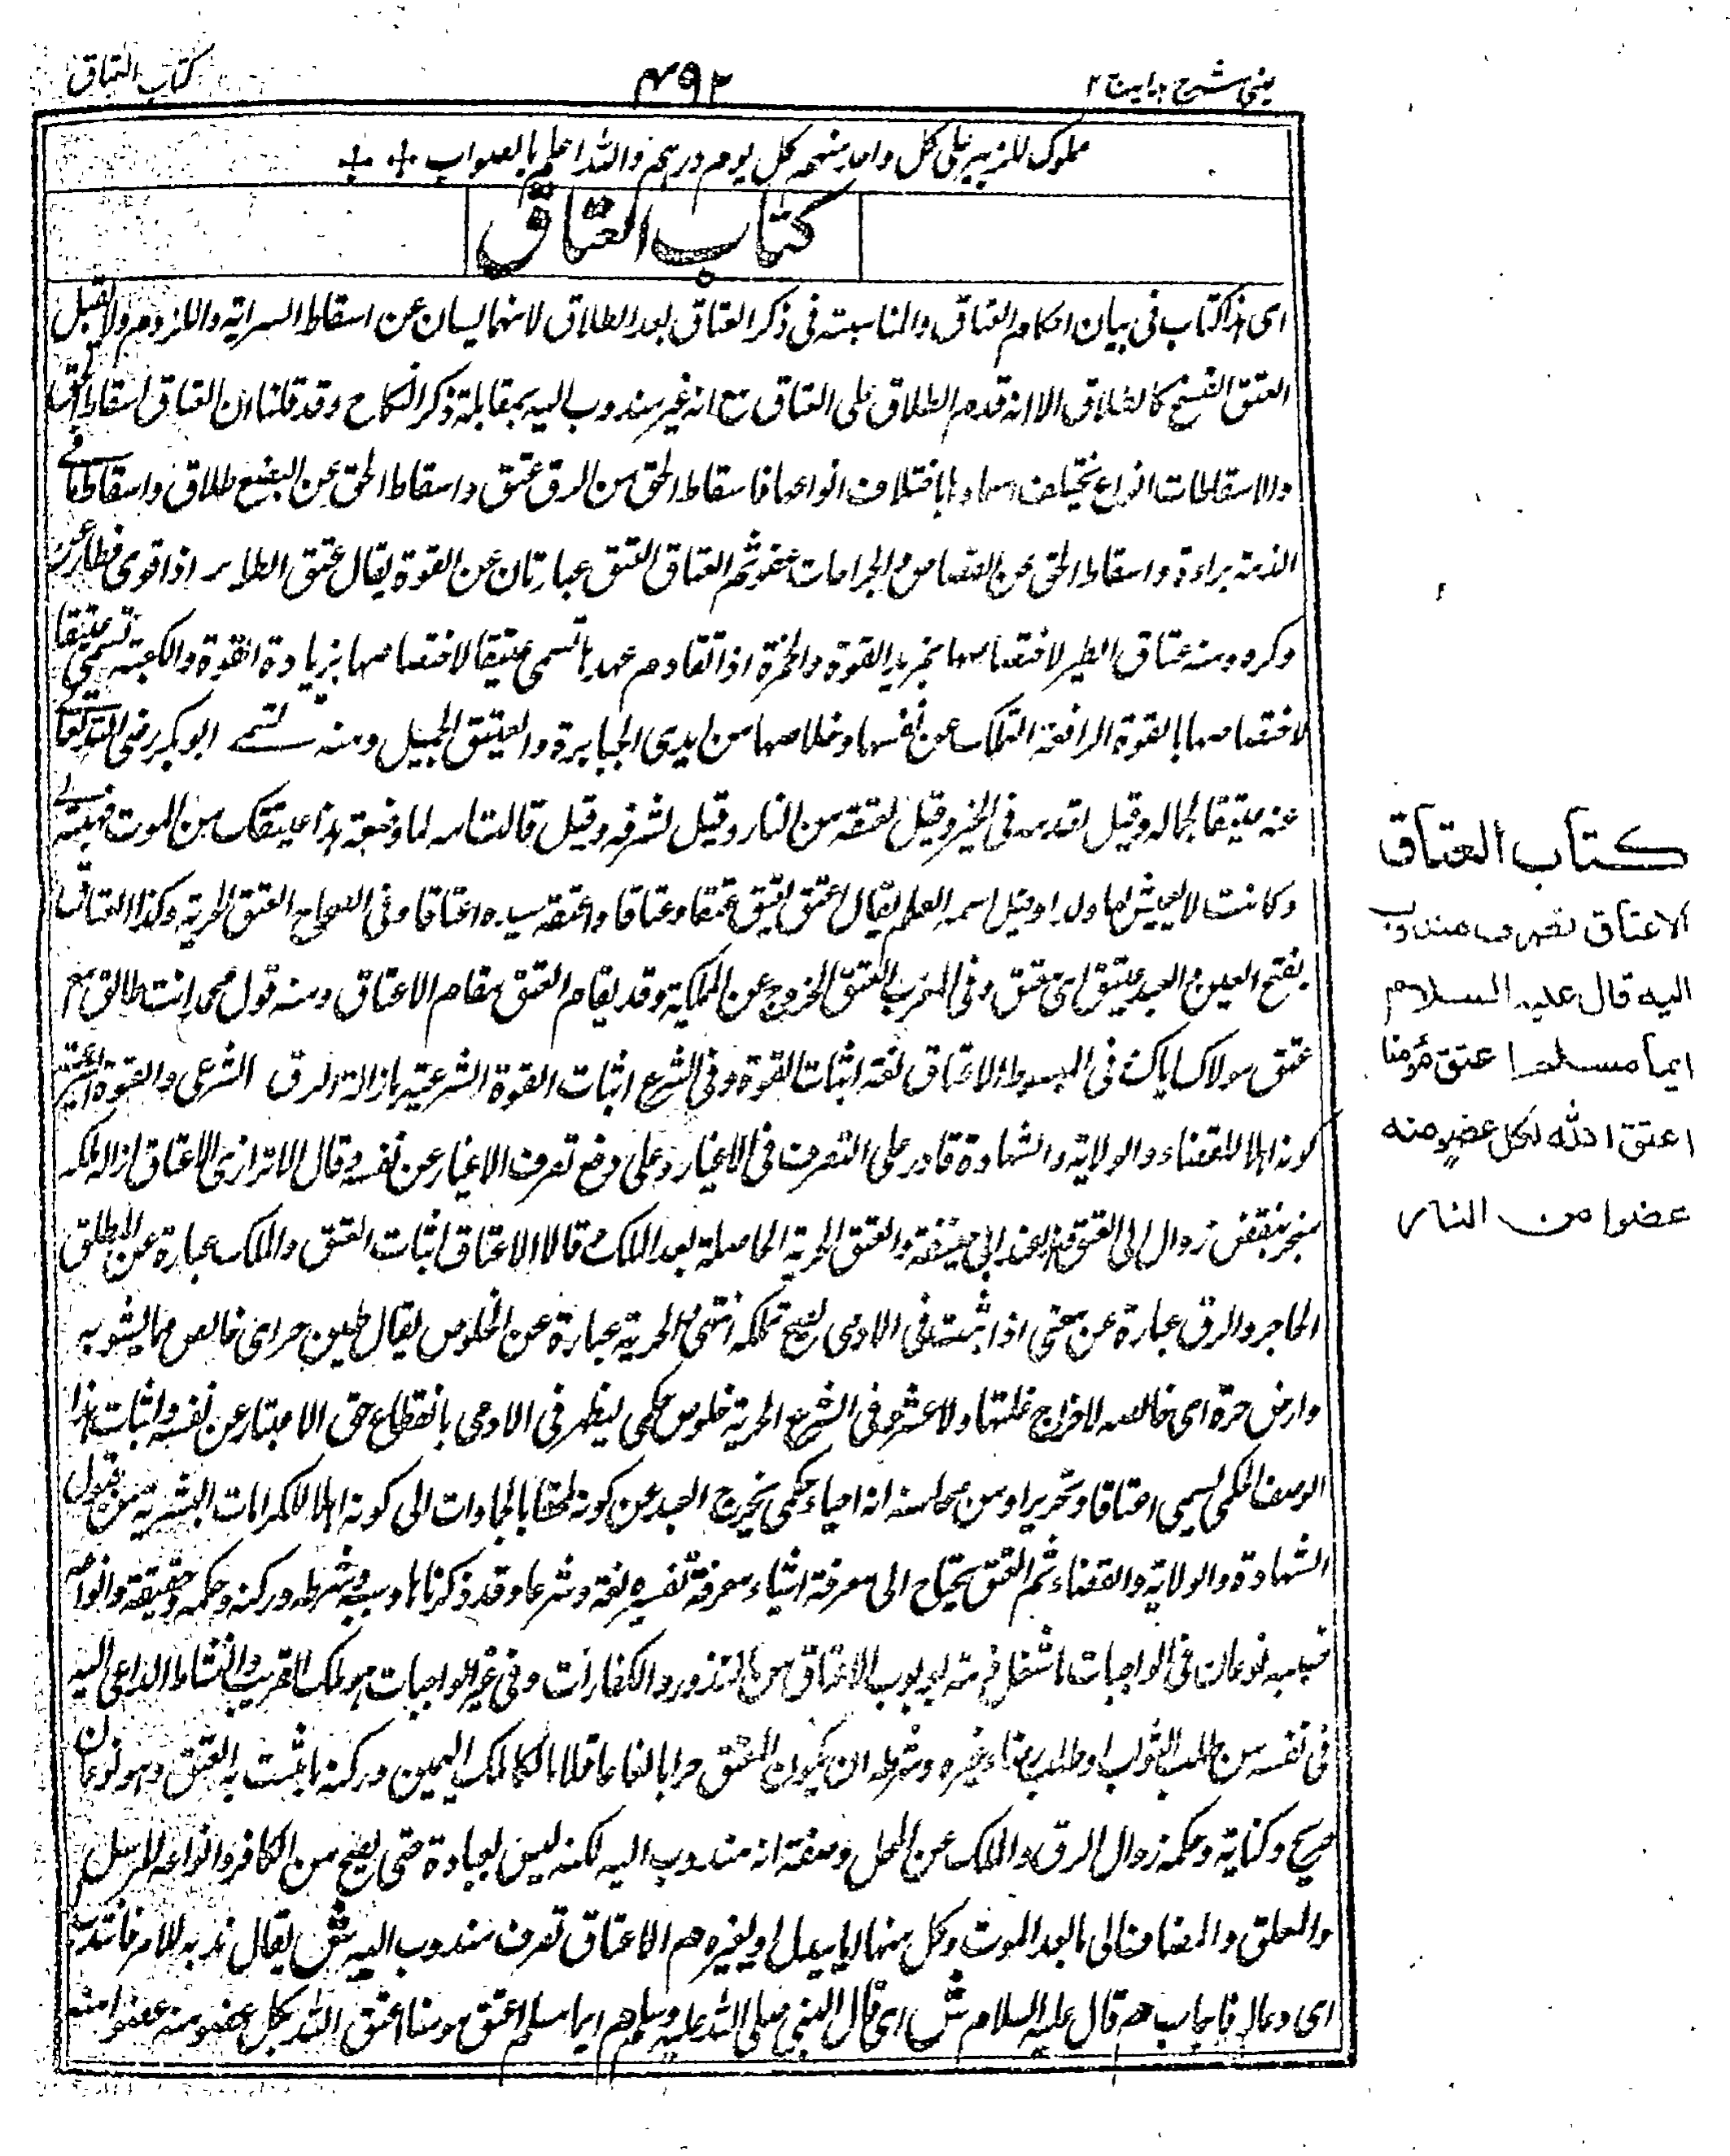 عینی شرح ہدایہ ج ۲
۴۹۲
کتاب العتاق
مملوک للزبیر علی کل واحد منهم کل یوم درهم والله اعلم بالصواب
کتاب العتاق
ای هذا کتاب فی بیان احکام العتاق والمناسبة فی ذکر العتاق بعد الطلاق لانهما یسان عن اسقاط السرایة واللزوم ولا یقبل
العتق الفسخ کالطلاق الا انه قدم الطلاق علی العتاق مع انه غیر مندوب الیه بمقابلة ذکر النکاح وقد قلنا ان العتاق اسقاط الحق
والاسقاطات انواع یختلف اسماوها باختلاف انواعها فاسقاط الحق من الرق عتق واسقاط الحق عن البضع طلاق واسقاط ما فی
الذمة براءة واسقاط الحق عن القصاص والجراحات عفو ثم العتاق العتق عبارتان عن القوة یقال عتق الطائر اذا قوی فطار عن
وکره ومنه عتاق الطیر لاختصاصها بمزید القوة والخمرة اذا تقادم عهدها تسمی عتیقا لاختصاصها بزیادة القوة والکعبة تسمی عتیقا
لاختصاصها بالقوة الرافعة التملک عن نفسها وخلاصها من ایدی الجبابرة والعتیق الجمیل ومنه سمی ابو بکر رضی الله تعالی
عنه عتیقا لجماله وقیل لقدمه فی الخیر وقیل لعتقه من النار وقیل لشرفه وقیل قالت امه لما وضعته هذا عتیقک من الموت فهبته لی
وکانت لا یعیش لها ولد او قیل اسمه العلم یقال عتق یعتق عتقا وعتاقا واعتقه سیده اعتاقا وفی الصحاح العتق الحریة وکذا العتاق
بفتح العین والعبد عتیق ای معتق وفی المغرب العتق الخروج عن المملکیة وقد یقام العتق مقام الاعتاق ومنه قول محمد انت طالق مع
عتق مولاک ایاک وفی المبسوط الاعتاق لغة اثبات القوة وفی الشرع اثبات القوة الشرعیة بازالة الرق الشرعی والقوة الشرعیة
کونه اهلا للقضاء والولایة والشهادة قادر علی التصرف فی الاغیار وعلی دفع تصرف الاغیار عن نفسه وقال الاترازی الاعتاق ازالة ملکه
الحاجر والرق عبارة عن معنی اذا ثبت فی الادمی یصح تملکه انتهی والحریة عبارة عن الخلوص یقال طین حر ای خالص مما یشوبه
وارض حرة ای خالصة لا خراج علیها ولا عشر وفی الشرع الحریة خلوص حکمی یظهر فی الادمی بانقطاع حق الاغیار عن نفسه واثبات هذا
الوصف الحکمی یسمی اعتاقا وتحریرا ومن محاسنه انه احیاء حکمی یخرج العبد عن کونه ملحقا بالجمادات الی کونه اهلا للکرامات البشریة من قبول
الشهادة والولایة والقضاء ثم العتق یحتاج الی معرفة اشیاء معرفة تفسیره لغة وشرعا وقد ذکرناها وسببه وشرطه ورکنه وحکمه وحقیقة وانواعه
فسببه نوعان فی الواجبات اشتغال ذمته بوجوب الاعتاق من النذور والکفارات وفی غیر الواجبات هو ملک القریب والنشاط الداعی الیه
فی نفسه من طلب الثواب او طلب رضاء غیره وشرطه ان یکون المعتق حرا بالغا عاقلا مالکا ملک الیمین ورکنه ما یثبت به العتق وهو نوعان
صریح وکنایة وحکمه زوال الرق والملک عن المحل وصفته انه مندوب الیه لکنه لیس بعبادة حتی یصح من الکافر وانواعه المرسل
والمعلق والمضاف الی ما بعد الموت وکل منها اما ببدل او بغیره م الاعتاق تصرف مندوب الیه ش یقال ندبه للامر فانتدب
ای دعاه فاجاب م قال علیه السلام ش ای قال النبی صلی الله علیه وسلم م ایما مسلم اعتق مومنا اعتق الله بکل عضو منه عضوا منه
کتاب العتاق
الاعتاق تصرف مندوب
الیه قال علیه السلام
ایما مسلم اعتق مؤمنا
اعتق الله بکل عضو منه
عضوا من النار